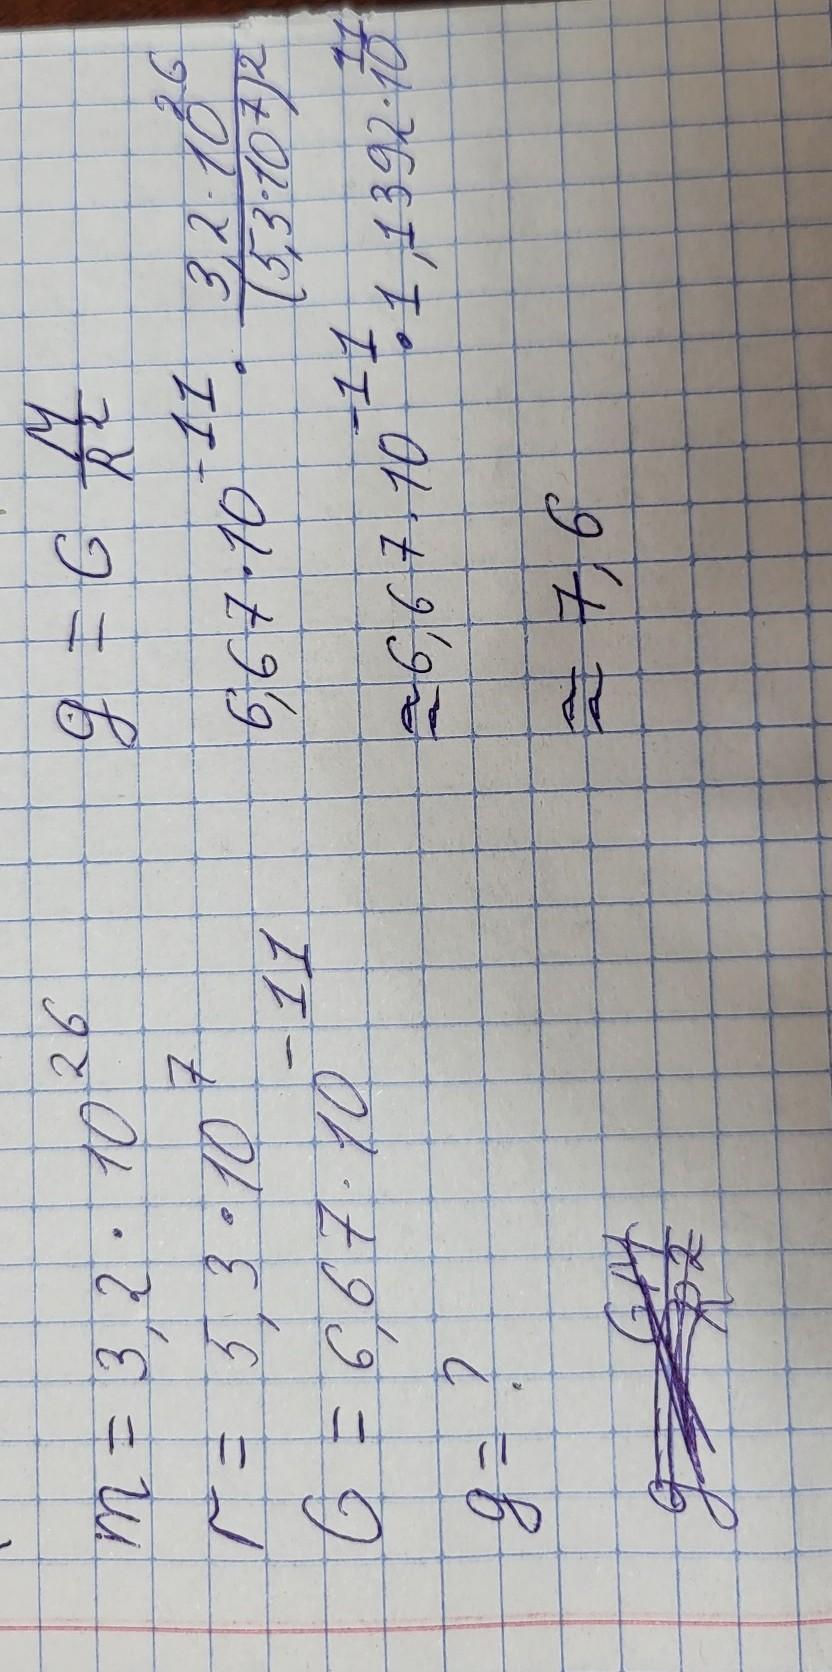 m = 3,2 · 10^26
r = 5,3 · 10^7
G = 6,67 · 10^-11
g = ?
g = G M/R^2
6,67 · 10^-11 · 3,2 · 10^26/(5,3 · 10^7)^2
≈ 6,67 · 10^-11 · 1,1392 · 10^11
≈ 7,6